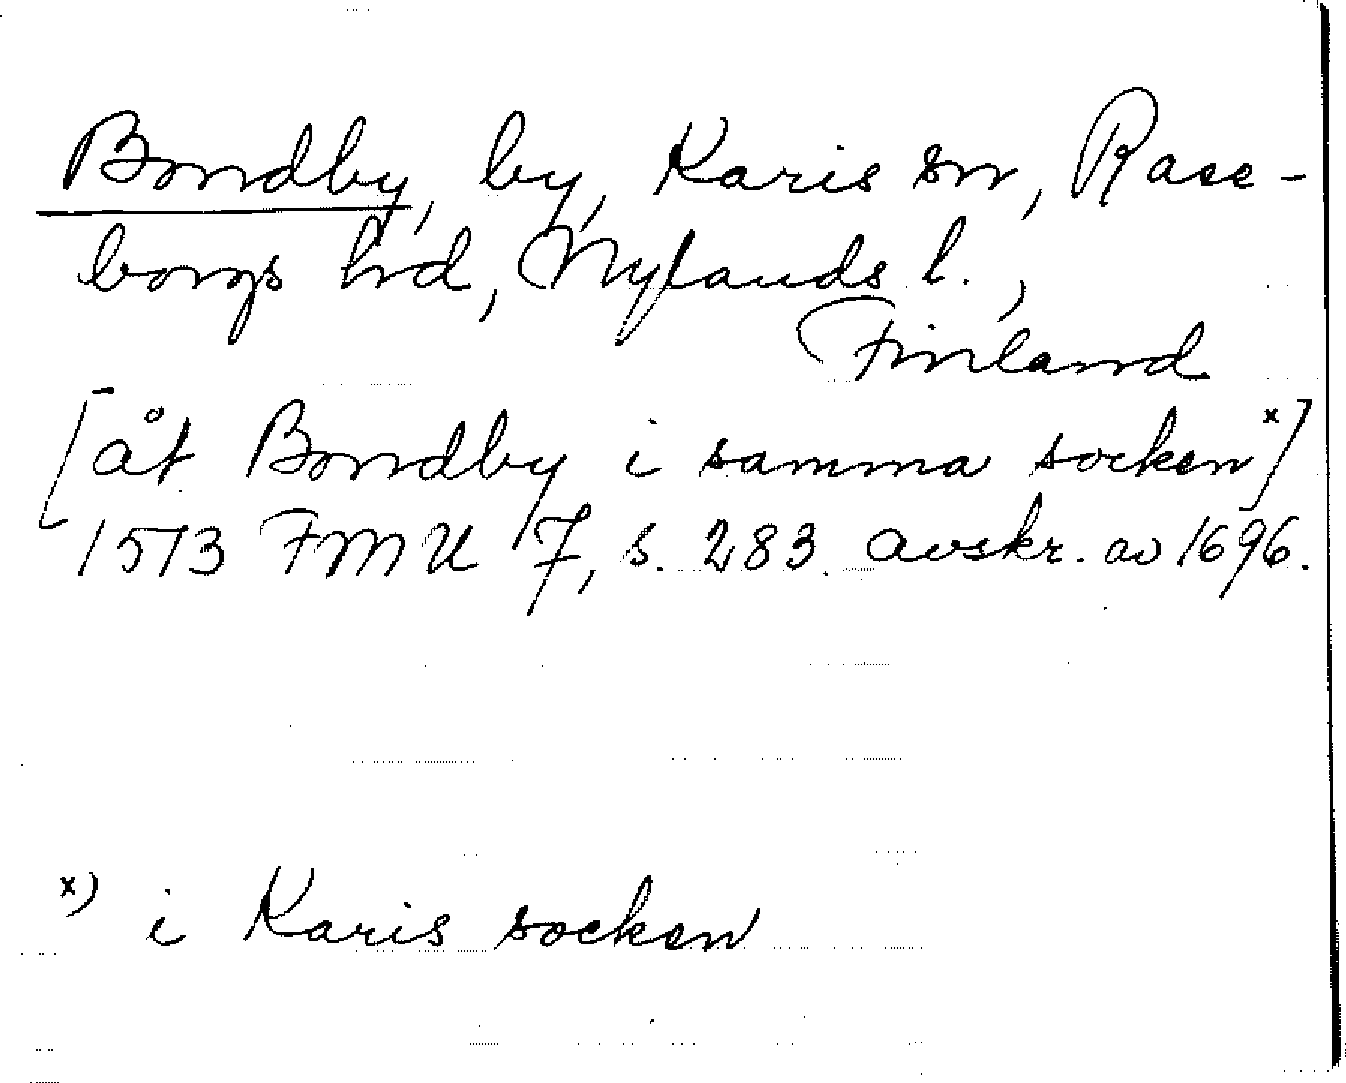 Bondby, by, Karis sn, Rase-
borgs hrd, Nylands l.,
Finland
[åt Bondby i samma socken x]
1513 FMU 7, s. 283 avskr. av 1696.
x) i Karis socken